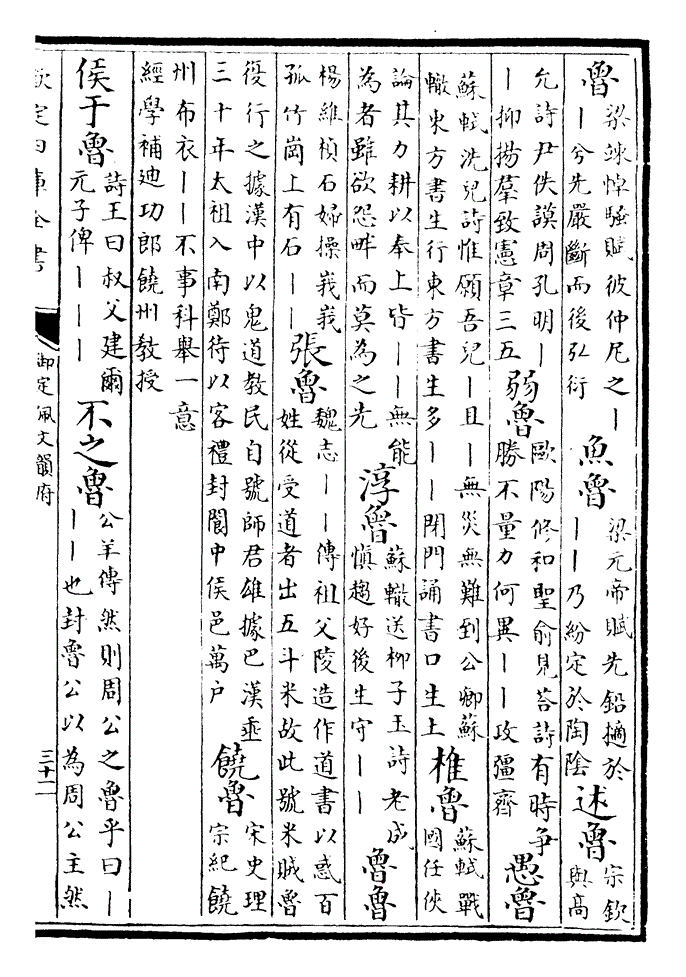 魯
梁竦悼騷賦彼仲尼之｜
｜兮先嚴斷而後弘衍
魚魯
梁元帝賦先鉛擿於
｜｜乃紛定於陶陰
述魯
宗欽
與高
允詩尹佚謨周孔明｜
｜抑揚羣致憲章三五
弱魯
歐陽修和聖俞見荅詩有時爭
勝不量力何異｜｜攻彊齊
愚魯
蘇軾洗兒詩惟願吾兒｜且｜無災無難到公卿蘇
轍東方書生行東方書生多｜｜閉門誦書口生土
椎魯
蘇軾戰
國任俠
論其力耕以奉上皆｜｜無能
為者雖欲怨畔而莫為之先
淳魯
蘇轍送柳子玉詩老成
愼趨好後生守｜｜
魯魯
楊維楨石婦操峩峩
孤竹崗上有石｜｜
張魯
魏志｜｜傳祖父陵造作道書以惑百
姓從受道者出五斗米故此號米賊魯
復行之據漢中以鬼道教民自號師君雄據巴漢垂
三十年太祖入南鄭待以客禮封閬中侯邑萬户
饒魯
宋史理
宗紀饒
州布衣｜｜不事科舉一意
經學補迪功郎饒州教授
侯于魯
詩王曰叔父建爾
元子俾｜｜｜
不之魯
公羊傳然則周公之魯乎曰｜
｜｜也封魯公以為周公主然
欽定四庫全書
御定佩文韻府
三十二